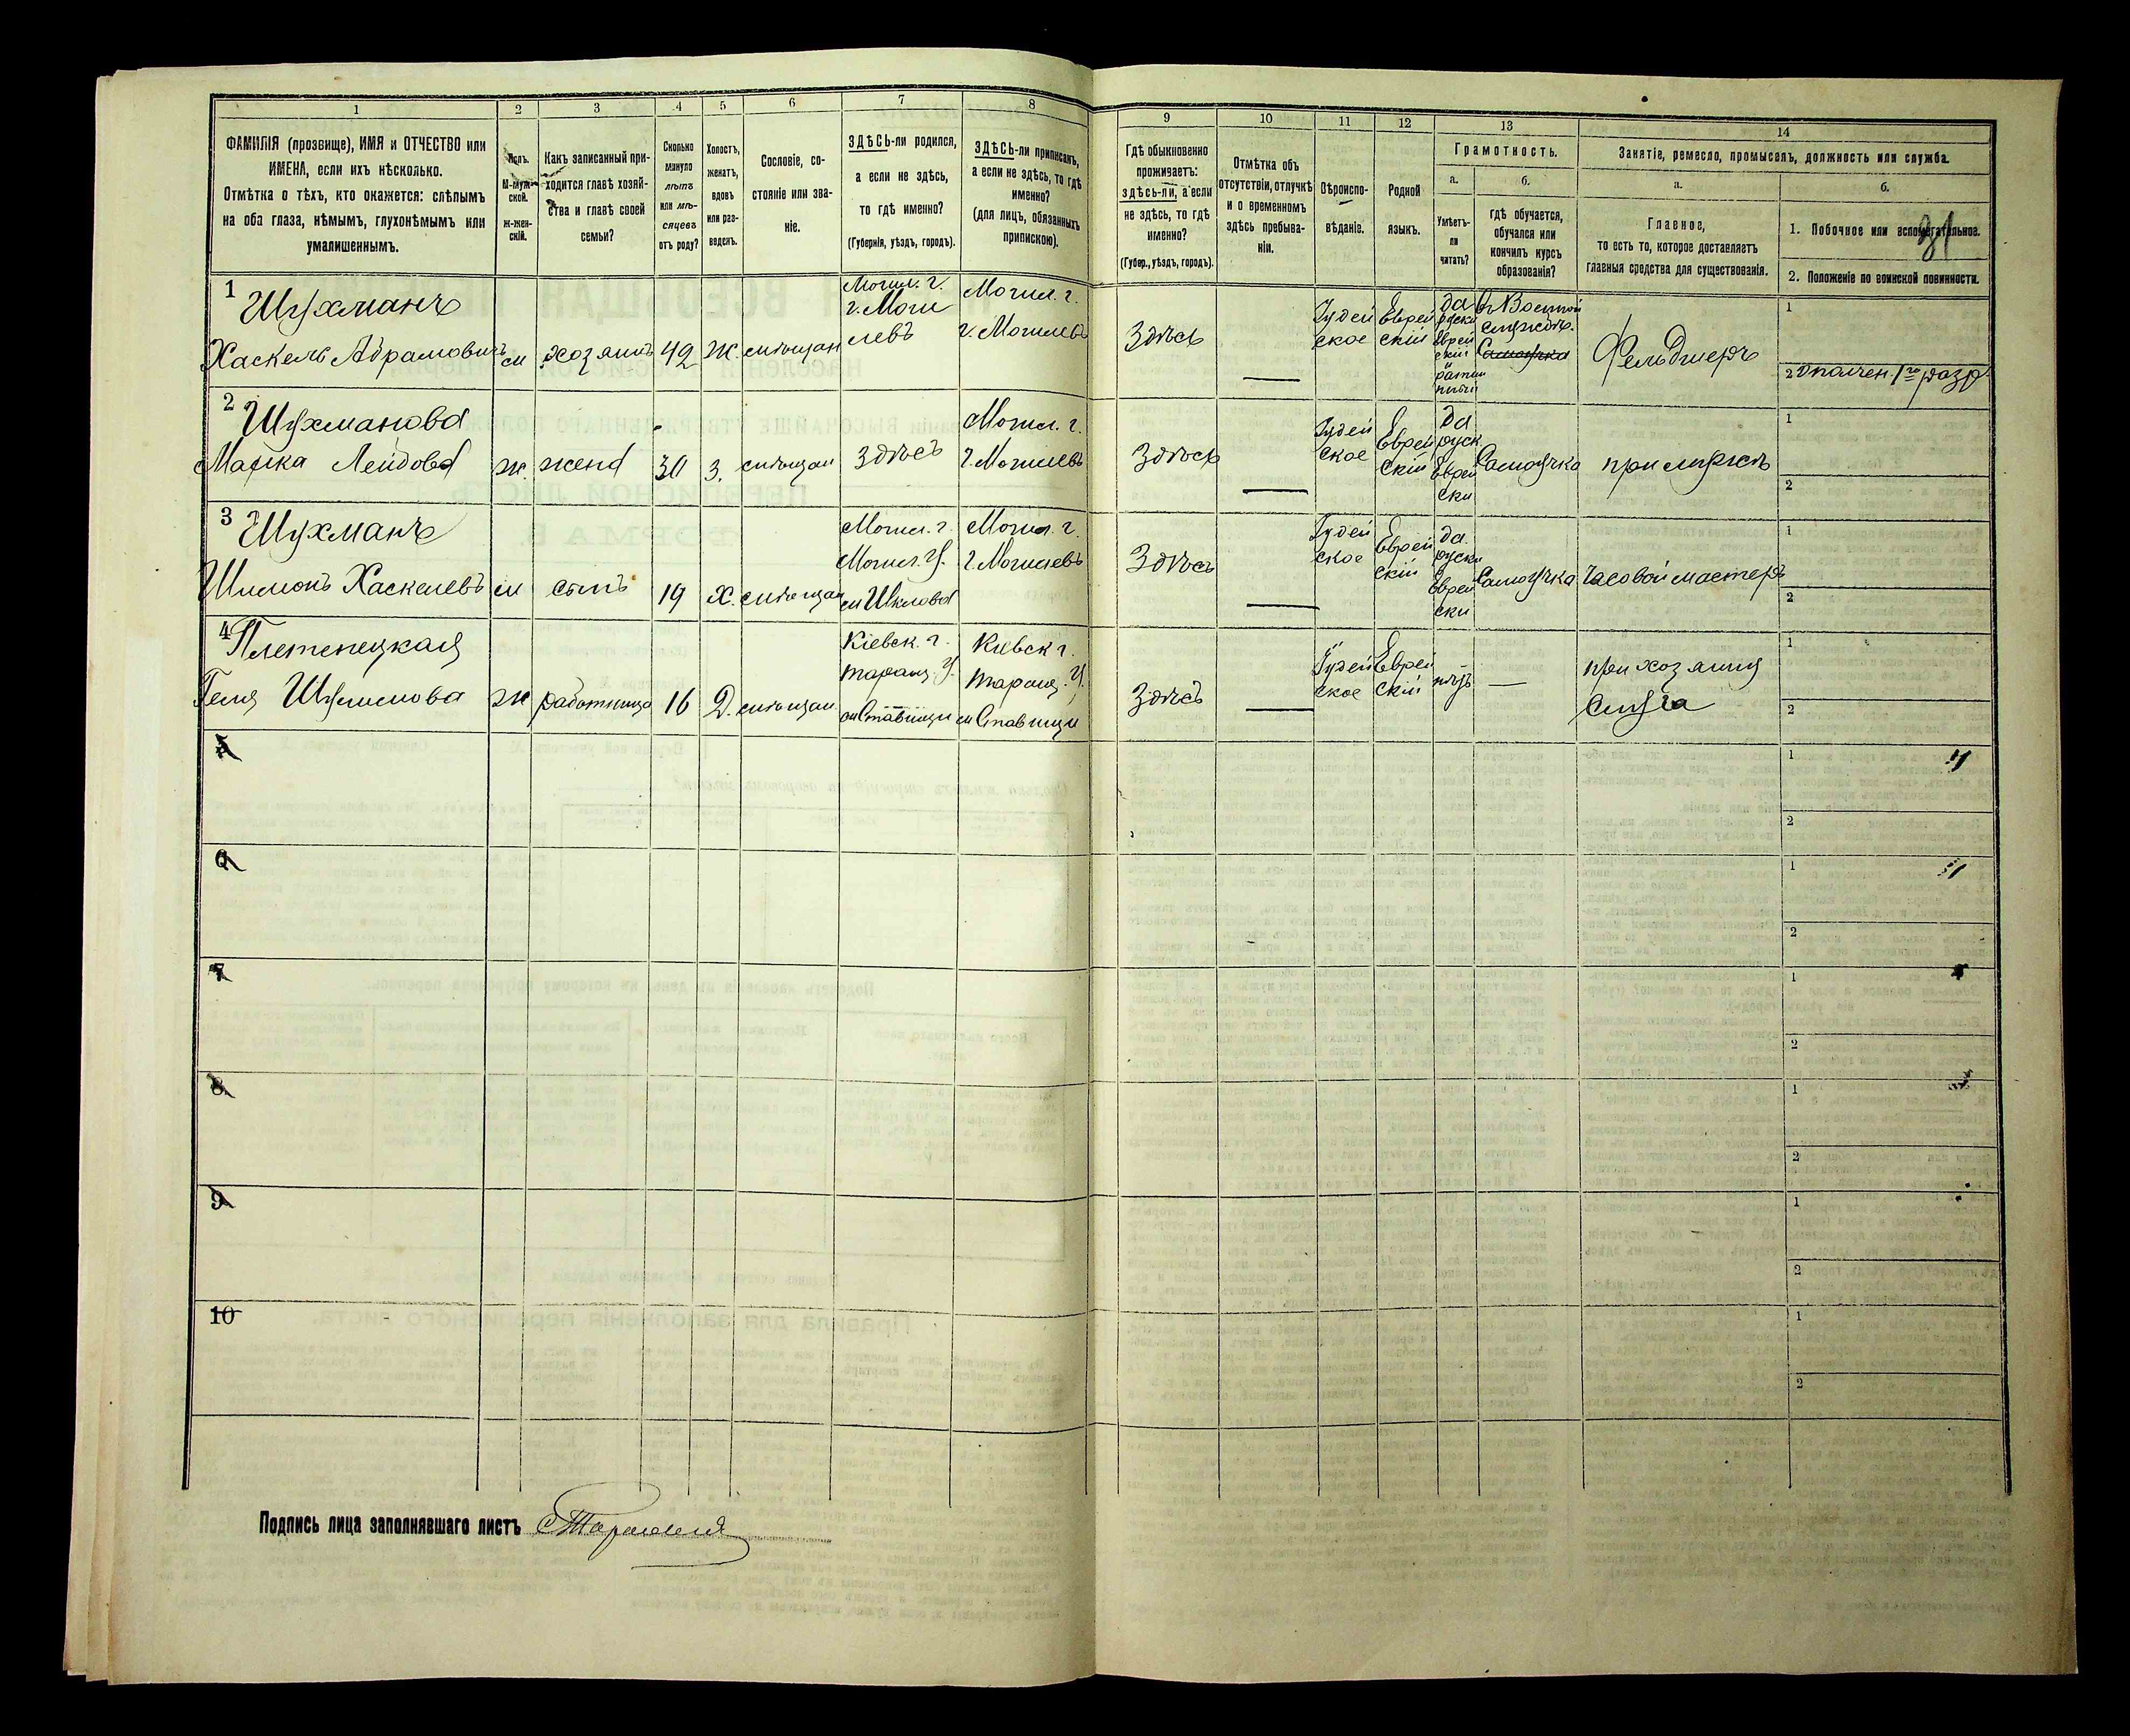 1
2
3
4
5
6
7
8
9
10
11
12
13
14
ФАМИЛІЯ (прозвище), ИМЯ и ОТЧЕСТВО или
ИМЕНА, если ихъ нѣсколько.
Отмѣтка о тѣхъ, кто окажется: слѣпымъ
на оба глаза, нѣмымъ, глухонѣмымъ или
умалишеннымъ.
Полъ.
М-муж-
ской.
Ж-жен-
скій.
Какъ записанный при-
ходится главѣ хозяй-
ства и главѣ своей
семьи?
Сколько
минуло
лѣтъ
или мѣ-
сяцевъ
отъ роду?
Холостъ,
женатъ,
вдовъ
или раз-
веденъ.
Сословіе, со-
стояніе или зва-
ніе.
ЗДѢСЬ-ли родился,
а если не здѣсь,
то гдѣ именно?
(Губернія, уѣздъ, городъ).
ЗДѢСЬ-ли приписанъ,
а если не здѣсь, то гдѣ
именно?
(для лицъ, обязанныхъ
припискою).
Гдѣ обыкновенно
проживаетъ:
здѣсь-ли, а если
не здѣсь, то гдѣ
именно?
(Губер., уѣздъ, городъ).
Отмѣтка объ
отсутствіи, отлучкѣ
и о временномъ
здѣсь пребыва-
ніи.
Вѣроиспо-
вѣданіе.
Родной
языкъ.
Грамотность.
а.
Умѣетъ-
ли
читать?
б.
гдѣ обучается,
обучался или
кончилъ курсъ
образованія?
Занятіе, ремесло, промыселъ, должность или служба.
а.
Главное,
то есть то, которое доставляетъ
главныя средства для существованія.
б.
1. Побочное или вспомогательное.
31
2. Положеніе по воинской повинности.
1
Шухманъ
Хаскель Абрамовичъ
м
хозяинъ
42
Ж.
мѣщан
Могил. г.
г. Моги
левъ
Могил. г.
г. Могилевъ
Здѣсь
—
Іудей
ское
Еврей
скій
да
руски
Еврей
скій
Въ Военной
службѣ.
Самоучка
Фельдшеръ
1
2 Ополчен. 1го разр.
2
Шухманова
Лейдова
ж.
жена
30
З.
мѣщан
здѣсь
Могил. г.
г. Могилевъ
Здѣсь
—
Іудей
ское
Еврей
скій
да
руск.
Еврей
ски
Самоучка
при мужѣ
1
2
3
Шухманъ
Шимонъ Хаскелевъ
м
сынъ
19
Х.
мѣщан
Могил. г.
Могил. у.
м Шклова
Могил. г.
г. Могилевъ
Здѣсь
—
Іудей
ское
Еврей
скій
да
руски
Еврей
ски
Самоучка
Часовой мастеръ
1
2
4
Плетенецкая
Геня Шулимова
ж
работница
16
Д.
мѣщан
Кіевск. г.
таращ. у.
м Ставищи
Кіевск г.
таращ. у.
м Ставищи
Здѣсь
—
Іудей
ское
Еврей
скій
нѣтъ
—
при хозяинѣ
Слуга
1
2
5
1
2
6
1
2
7
1
2
8
1
2
9
1
2
10
1
2
Подпись лица заполнявшаго листъ